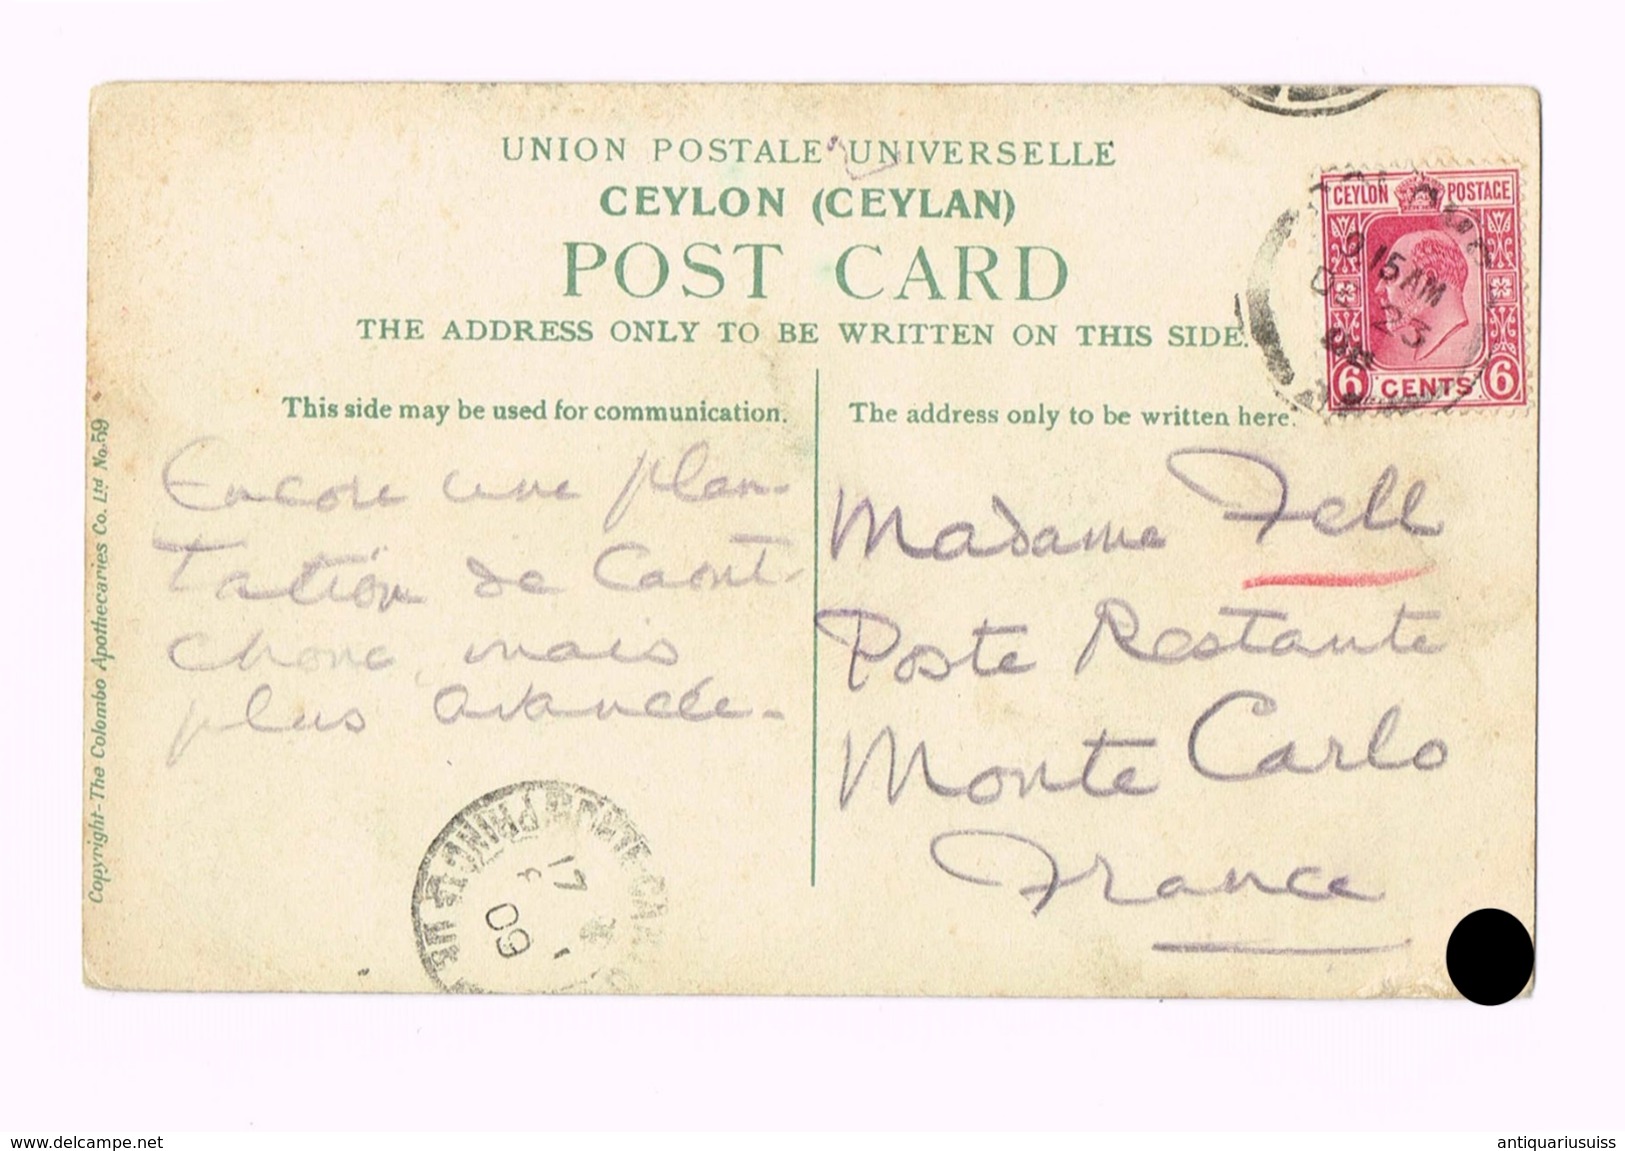 UNION POSTALE UNIVERSELLE
CEYLON (CEYLAN)
POST CARD
THE ADDRESS ONLY TO BE WRITTEN ON THIS SIDE.
CEYLON POSTAGE
6 CENTS 6
9 15 AM
DE 23
08
This side may be used for communication.
Encore une plan-
tation de Caout-
chouc, mais
plus avancée.
The address only to be written here.
Madame Fell
Poste Restante
Monte Carlo
France
MONTE-CARLO
17
1
09
Copyright-The Colombo Apothecaries Co. Ltd No.59
www.delcampe.net
antiquariusuiss